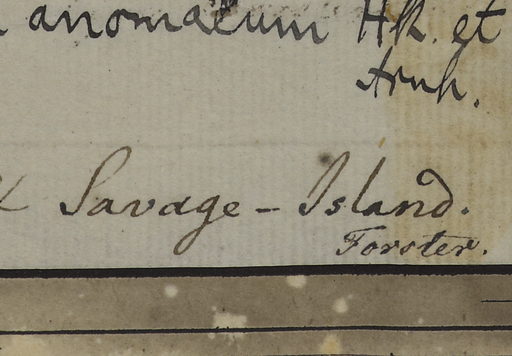 anomalum Hk. et
Arnh.
Savage - Island.
Forster.